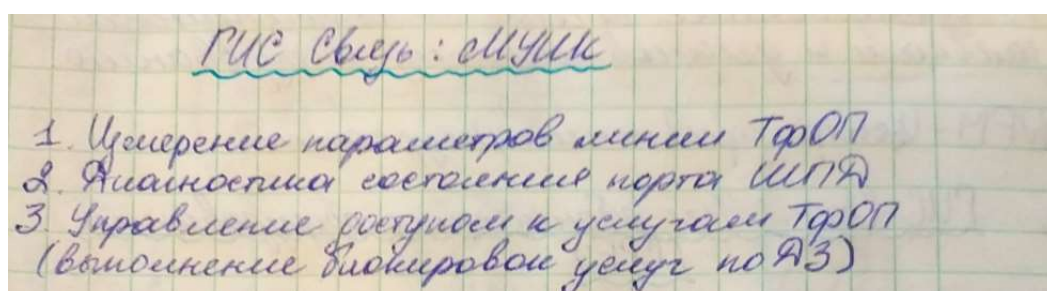 ГИС Связь: МУИК
1. Измерение параметров линии ТфОП
2. Диагностика состояния порта ШПД
3. Управление доступом к услугам ТфОП
(выполнение блокировок услуг по ДЗ)